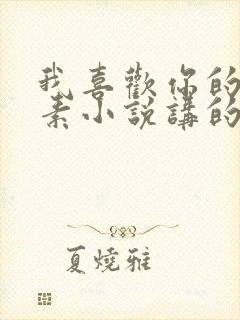 我喜歡你的
素小說講的
夏燒雅